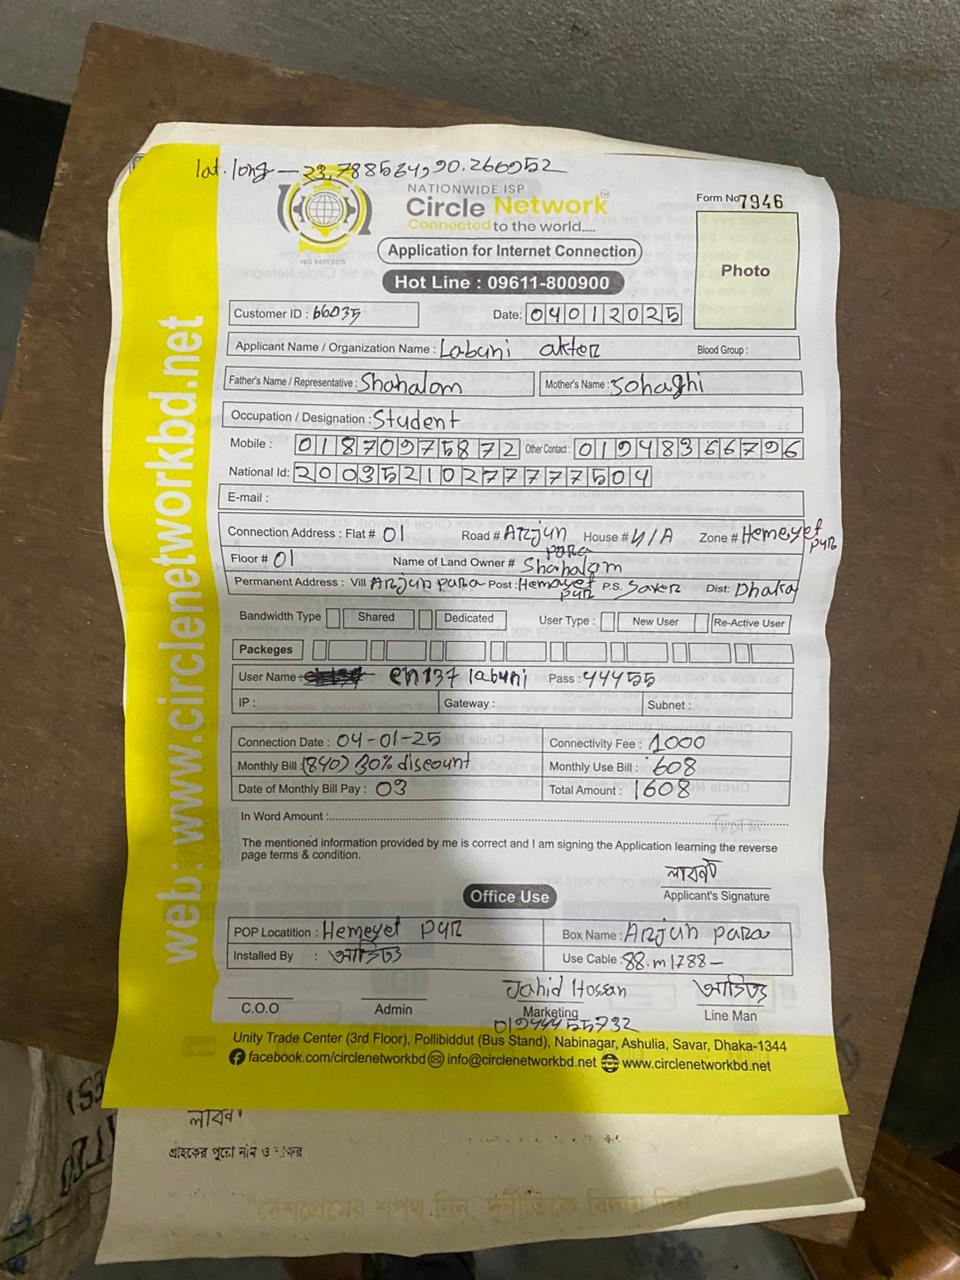 lat.long — 23,788564,90.260952
NATIONWIDE ISP
Circle Network
Connected to the world.....
ISO 9001:2015
Form No 7946
Photo
Application for Internet Connection
Hot Line : 09611-800900
Customer ID : 66035
Date: 04012025
Applicant Name / Organization Name : Labuni akter
Blood Group :
Father's Name / Representative : Shahalom
Mother's Name : Sohaghi
Occupation / Designation : Student
Mobile : 01870975872 Other Contact : 01948366796
National Id: 20035210277777504
E-mail :
Connection Address : Flat # 01 Road # Arjun para House # N/A Zone # Hemeyet pur
Floor # 01 Name of Land Owner # Shahalom
Permanent Address : Vill Arjun para Post : Hemayet pur P.S. Saver Dist: Dhaka
Bandwidth Type Shared Dedicated User Type : New User Re-Active User
Packeges
User Name : en137 labuni Pass : 44455
IP : Gateway : Subnet :
Connection Date : 04-01-25 Connectivity Fee : 1000
Monthly Bill : (840) 30% discount Monthly Use Bill : 608
Date of Monthly Bill Pay : 03 Total Amount : 1608
In Word Amount :
The mentioned information provided by me is correct and I am signing the Application learning the reverse
page terms & condition.
লাবনী
Applicant's Signature
Office Use
POP Locatition : Hemeyet pur Box Name : Arjun para
Installed By : Use Cable : 88.m 1788 –
Jahid Hossan
C.O.O Admin Marketing Line Man
01944455732
Unity Trade Center (3rd Floor), Pollibiddut (Bus Stand), Nabinagar, Ashulia, Savar, Dhaka-1344
facebook.com/circlenetworkbd info@circlenetworkbd.net www.circlenetworkbd.net
web: www.circlenetworkbd.net
গ্রাহকের পুরো নাম ও স্বাক্ষর
দেশপ্রেমের শপথ নিন, দুর্নীতিকে বিদায় দিন